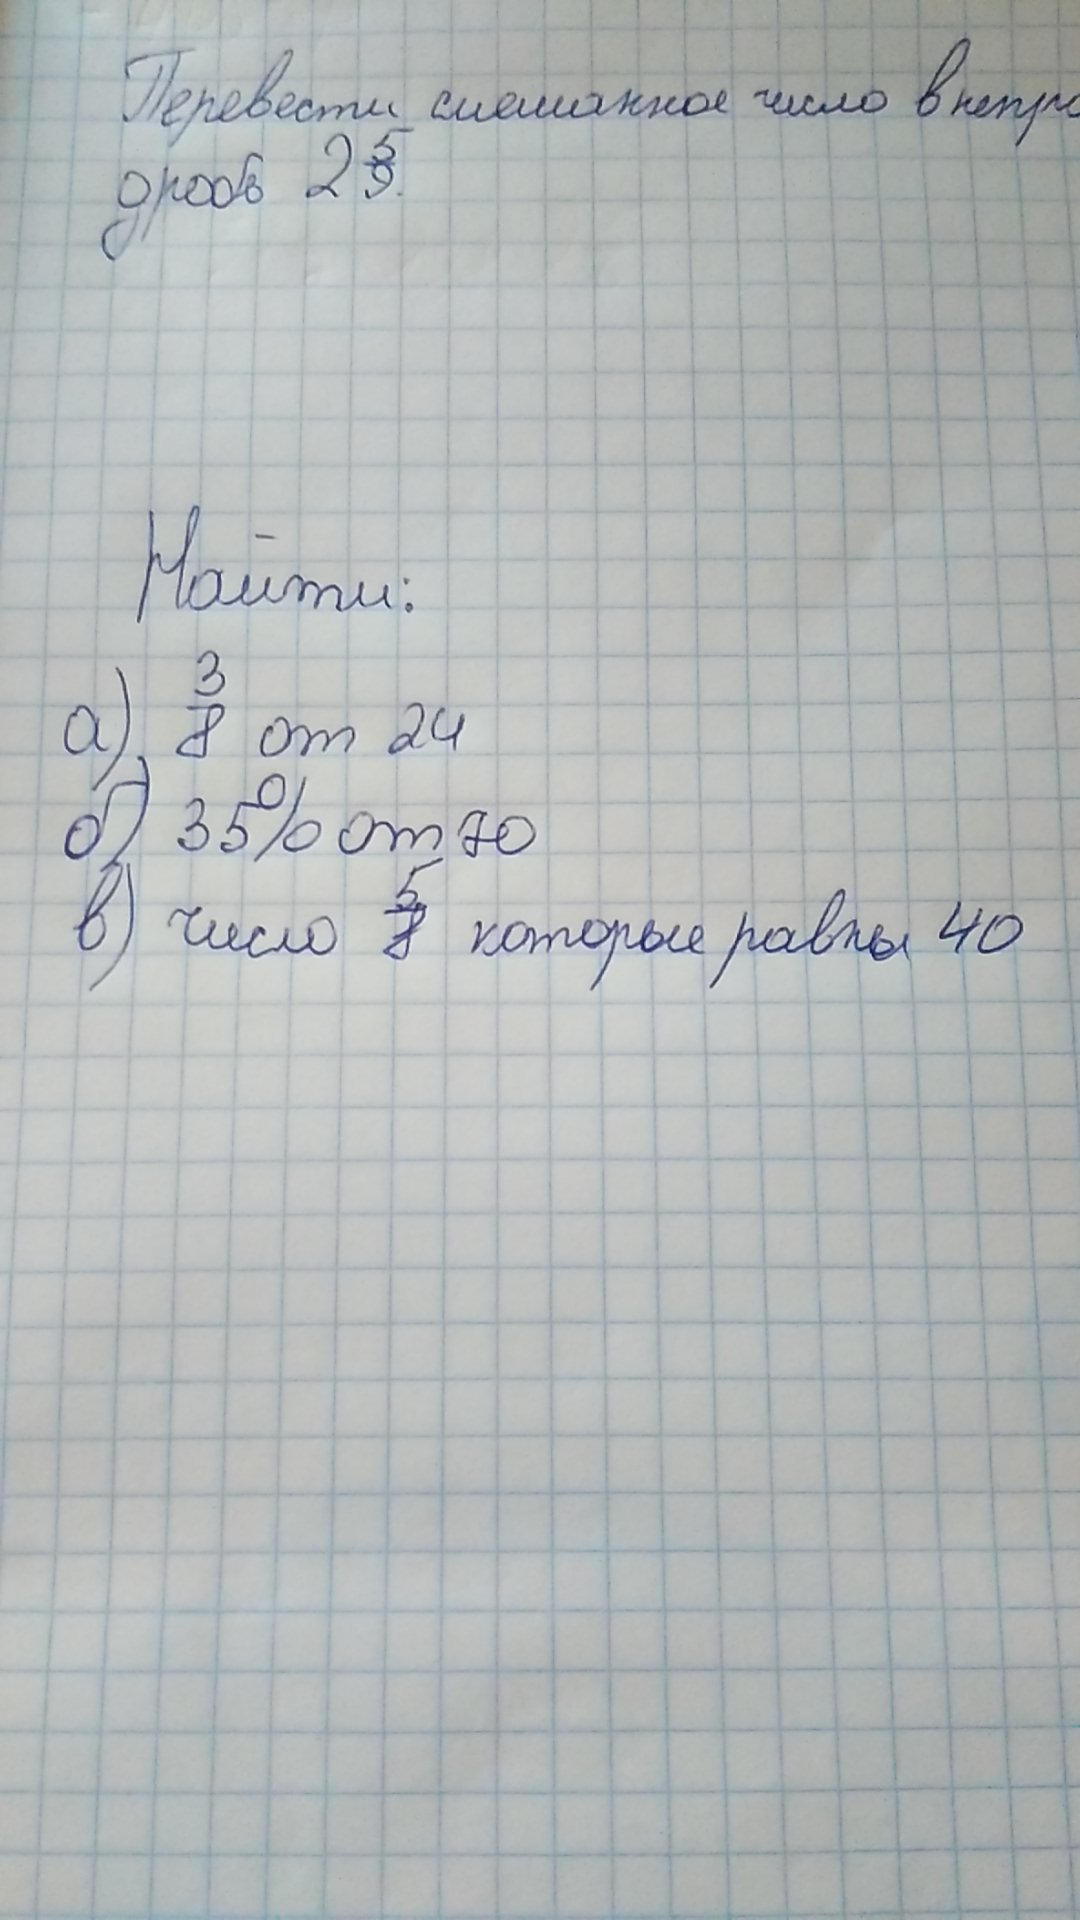 Перевести смешанное число в непра
дробь 2 5/9.
Найти:
а) 3/8 от 24
б) 35% от 70
в) число 5/8 которые равны 40